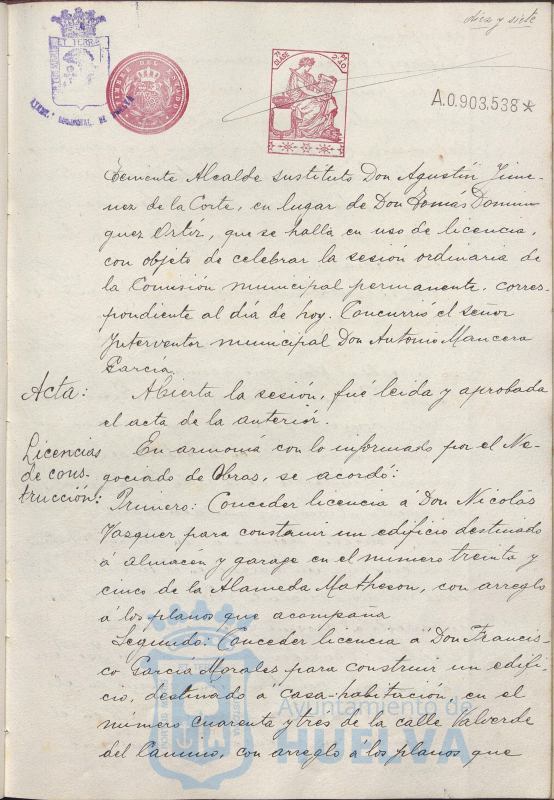 diez y siete
ET TERRÆ
TIMBRE DEL ESTADO
CLASE
2'40
A.0.903.538*
Temente Alcalde sustituto Don Agustín Jime-
nez de la Corte, en lugar de Don Tomas Domin-
guez Ortiz, que se halla en uso de licencia,
con objeto de celebrar la sesión ordinaria de
la Comisión municipal permanente, corres-
pondiente al día de hoy. Concurrió el señor
Interventor municipal Don Antonio Mancera
García.
Acta: Abierta la sesión, fué leida y aprobada
el acta de la anterior.
Licencias
de cons-
trucción:
En armonía con lo informado por el Ne-
gociado de Obras, se acordó:
Primero: Conceder licencia á Don Nicolás
Vazquez para construir un edificio destinado
á almacén y garage en el número treinta y
cinco de la Alameda Matheson, con arreglo
á los planos que acompaña.
Segundo: Conceder licencia á Don Francis-
co García Morales para construir un edifi-
cio, destinado á casa-habitación, en el
número cuarenta y tres de la calle Valverde
del Camino, con arreglo á los planos que
Ayuntamiento de
HUELVA